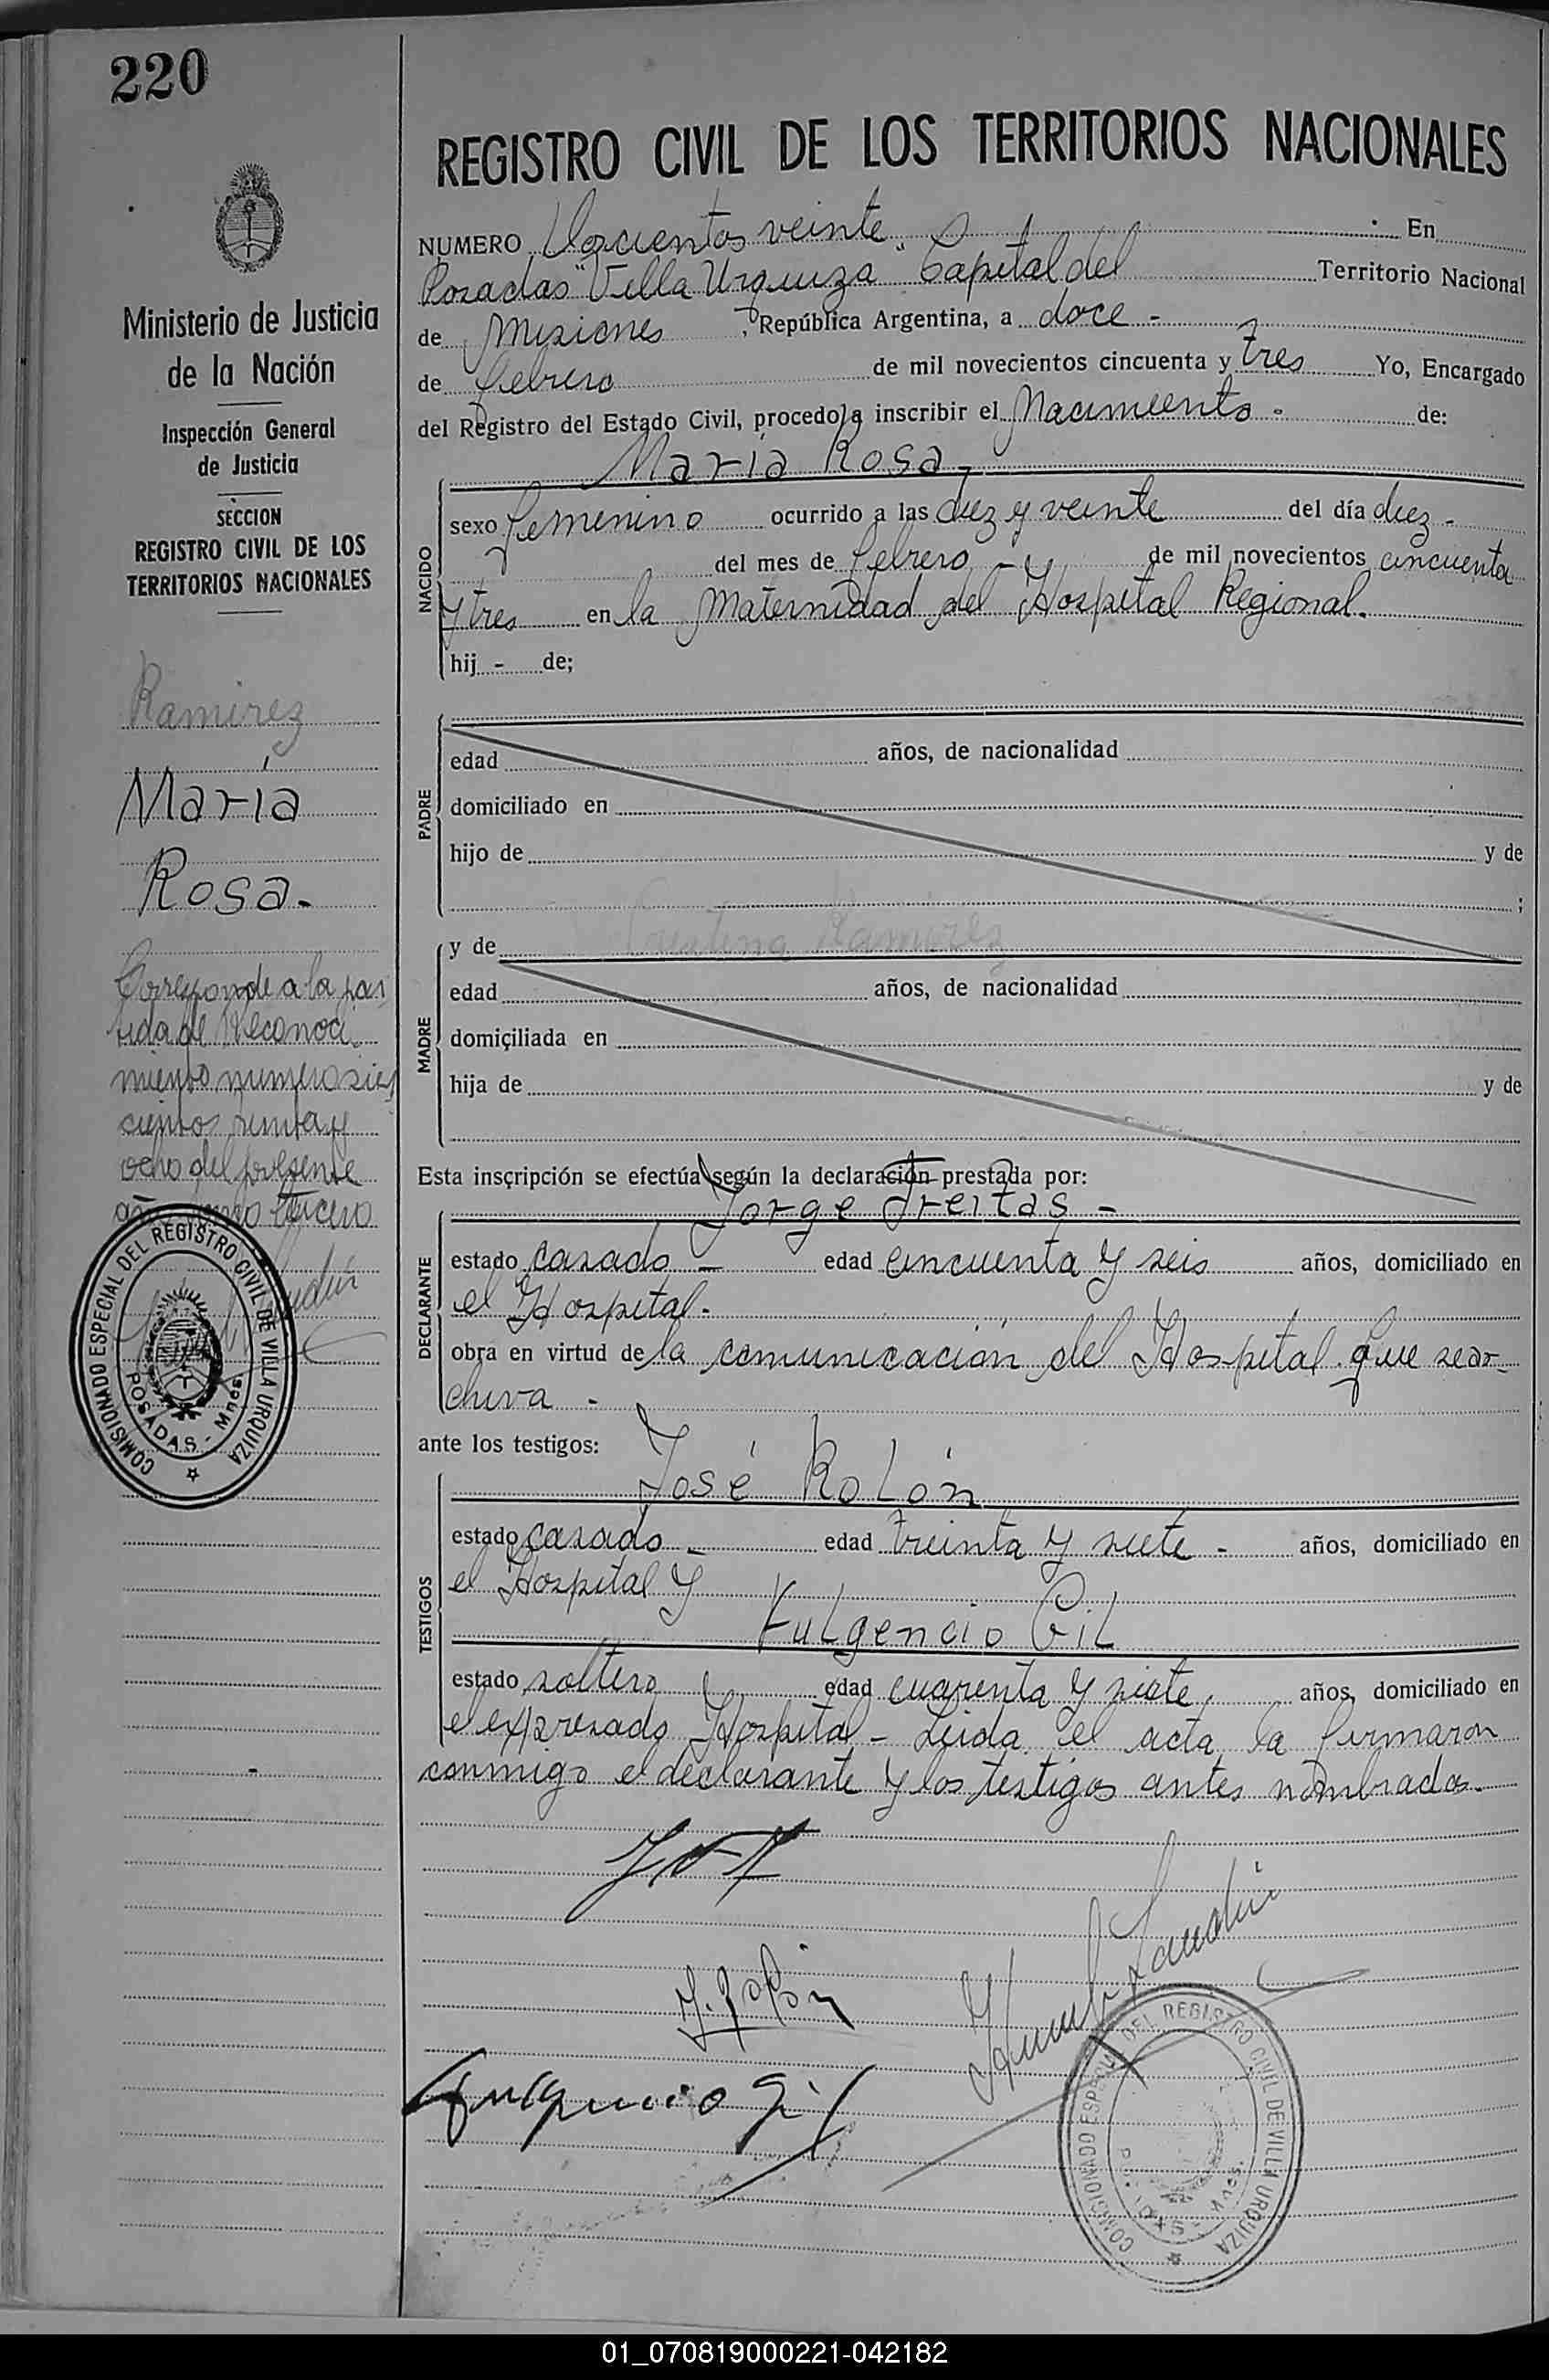 220
Ministerio de Justicia
de la Nación
Inspección General
de Justicia
SECCION
REGISTRO CIVIL DE LOS
TERRITORIOS NACIONALES
Ramirez
María
Rosa.
Corresponde a la par
tida de Reconoci
miento numero seis
cientos treinta y
ocho del presente
año tomo tercero
COMISIONADO ESPECIAL DEL REGISTRO CIVIL DE VILLA URQUIZA
POSADAS - Mnes.
REGISTRO CIVIL DE LOS TERRITORIOS NACIONALES
NUMERO Doscientos veinte. En
Posadas "Villa Urquiza" Capital del Territorio Nacional
de Misiones, República Argentina, a doce -
de febrero de mil novecientos cincuenta y tres Yo, Encargado
del Registro del Estado Civil, procedo a inscribir el Nacimiento - de:
María Rosa -
NACIDO
sexo femenino ocurrido a las diez y veinte del día diez -
del mes de febrero - de mil novecientos cincuenta
y tres en la Maternidad del Hospital Regional.
hij - de;
PADRE
edad años, de nacionalidad
domiciliado en
hijo de y de
;
MADRE
y de Ramirez
edad años, de nacionalidad
domiciliada en
hija de y de
Esta inscripción se efectúa según la declaración prestada por:
Jorge Freitas -
DECLARANTE
estado casado - edad cincuenta y seis años, domiciliado en
el Hospital.
obra en virtud de la comunicación del Hospital que se ar-
chiva -
ante los testigos:
José Rolón
TESTIGOS
estado casado - edad treinta y siete - años, domiciliado en
el Hospital y
Fulgencio Gil
estado soltero edad cuarenta y siete, años, domiciliado en
el expresado Hospital - Leida el acta, la firmaron
conmigo el declarante y los testigos antes nombrados.
J. Rolón
Fulgencio Gil
COMISIONADO ESPECIAL DEL REGISTRO CIVIL DE VILLA URQUIZA
01_070819000221-042182